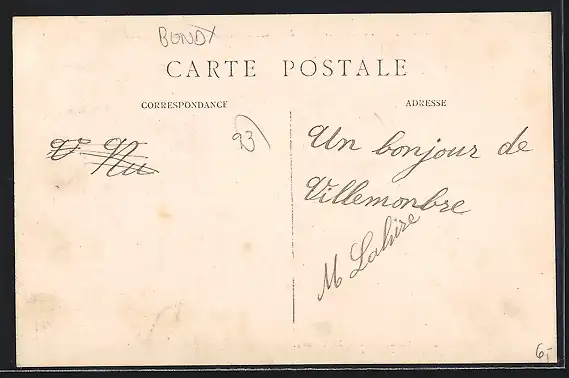 BONDY
CARTE POSTALE
CORRESPONDANCE
ADRESSE
93)
Un bonjour de
Villemonbre
M Lahire
6,-